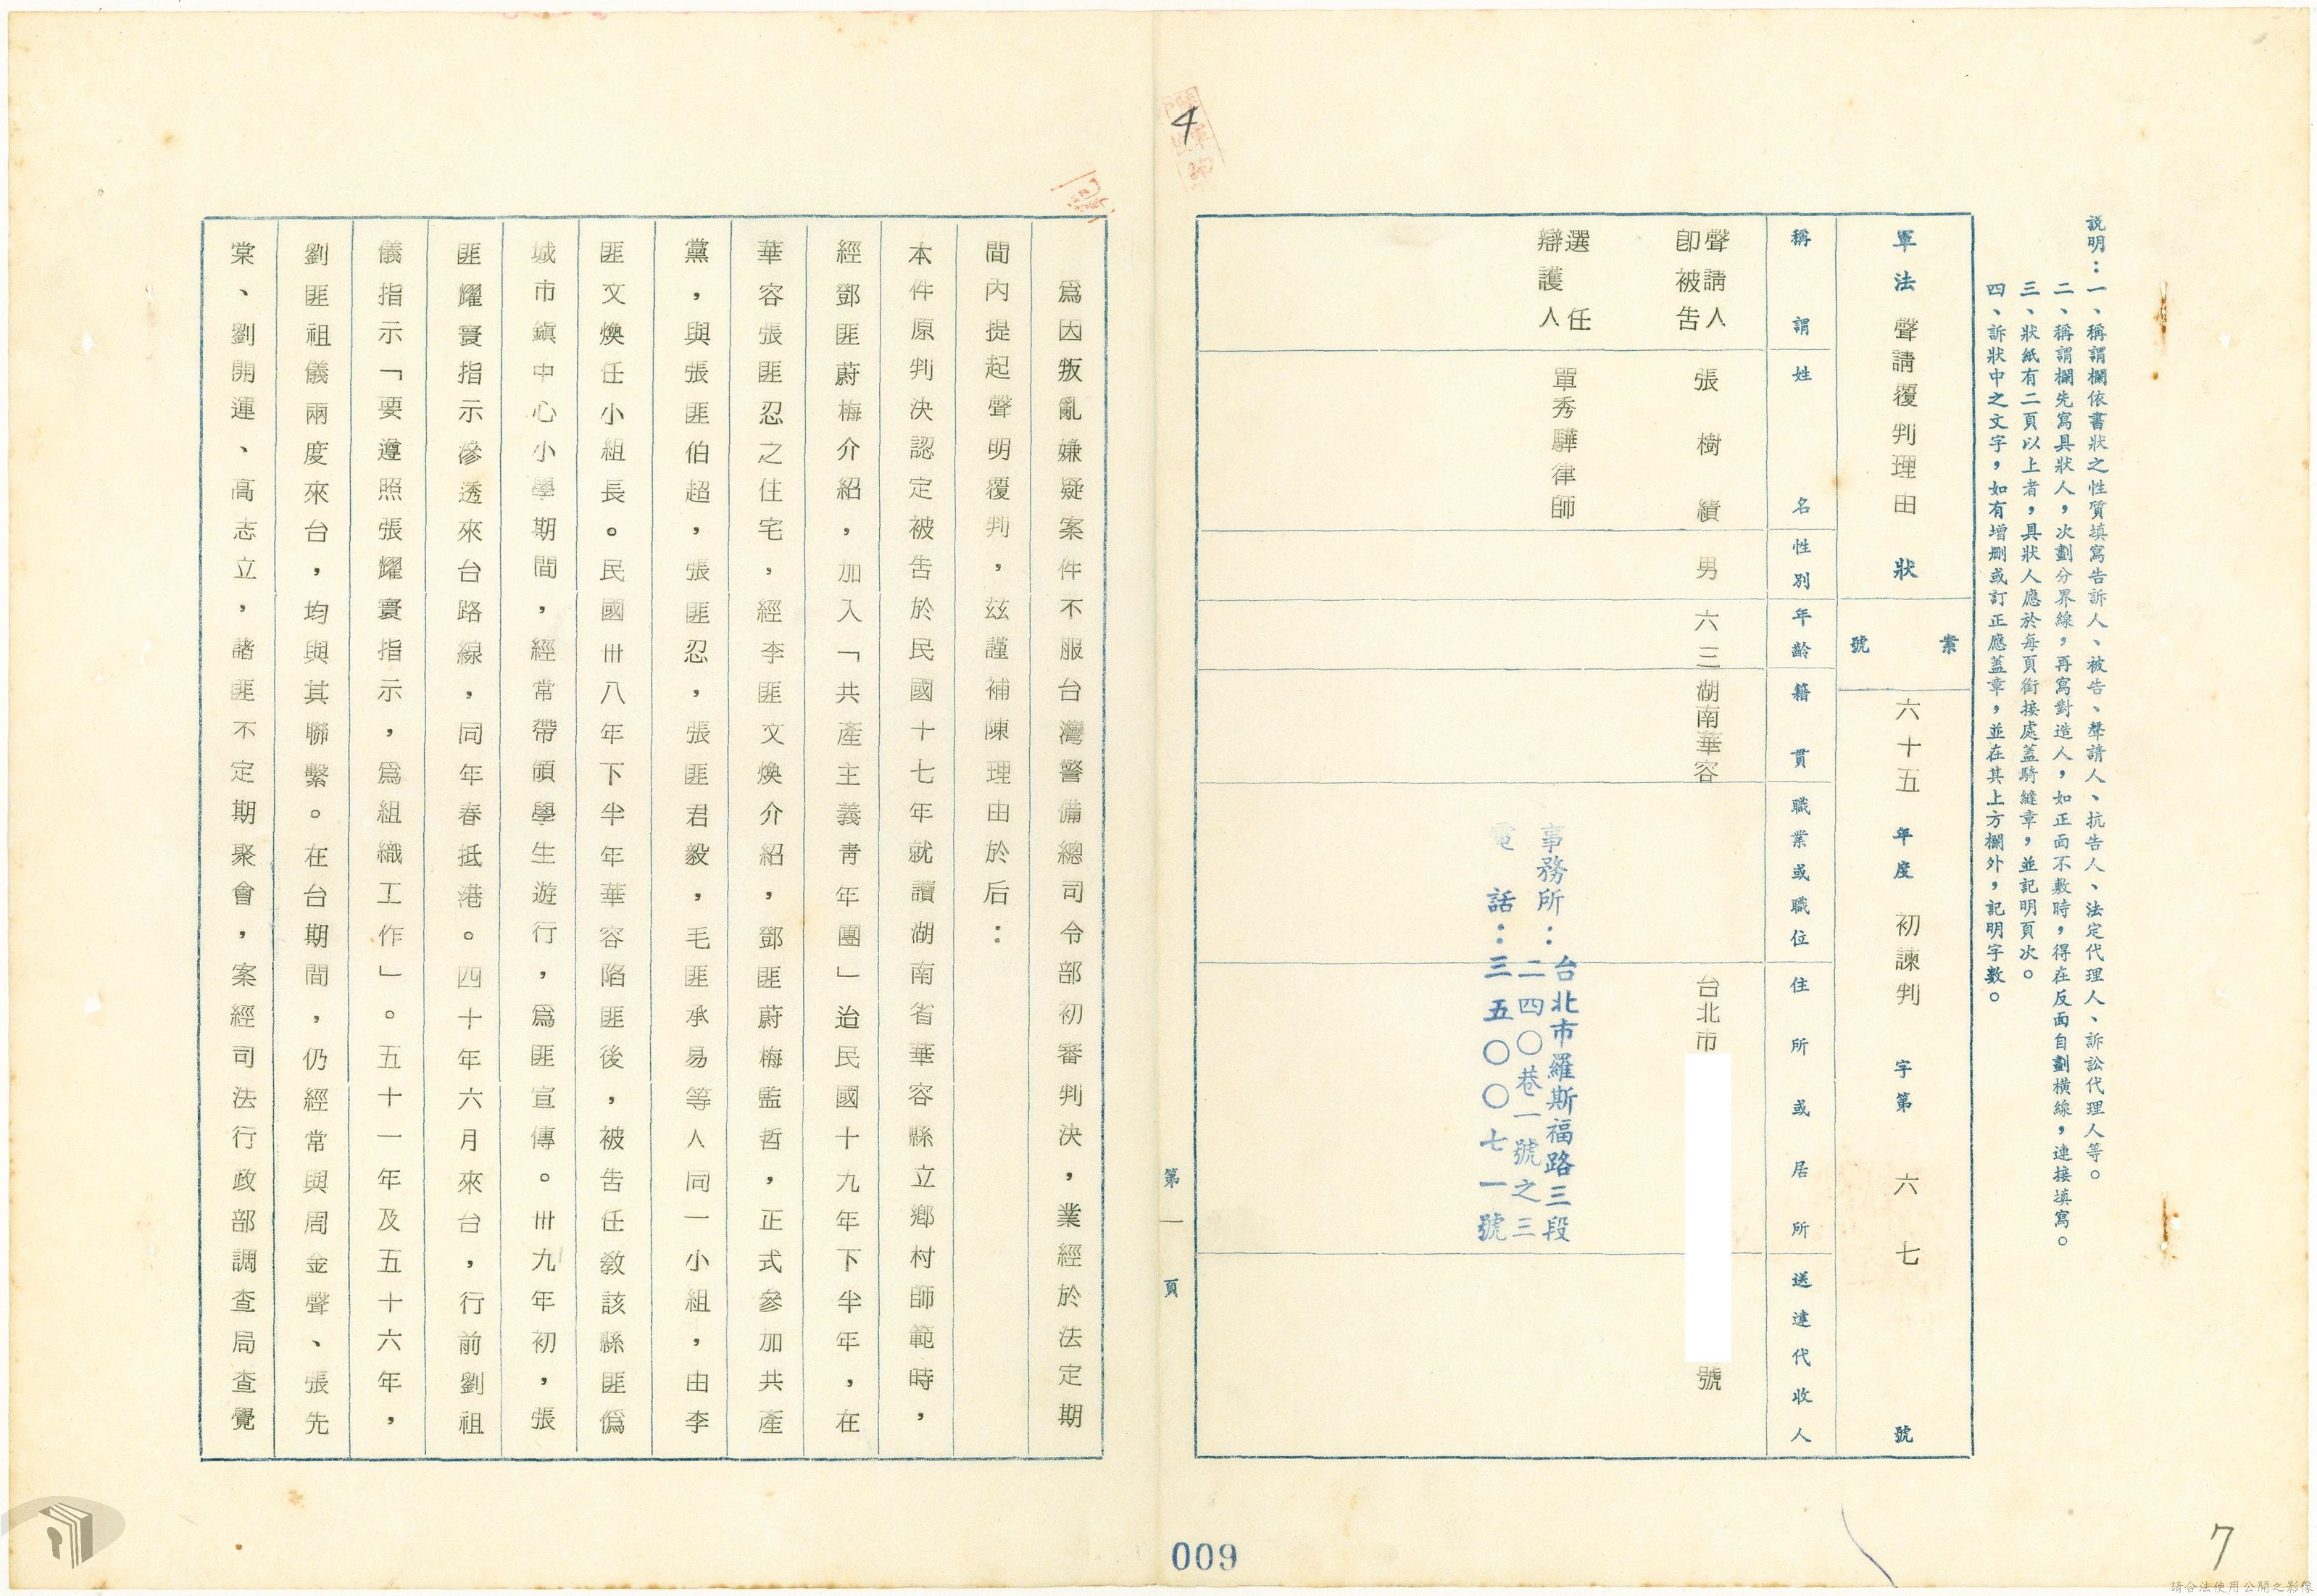 說明：一、稱謂欄依書狀之性質填寫告訴人、被告、聲請人、抗告人、法定代理人、訴訟代理人等。
二、稱謂欄先寫具狀人，次劃分界線，再寫對造人，如正面不敷時，得在反面自劃橫線，連接填寫。
三、狀紙有二頁以上者，具狀人應於每頁銜接處蓋騎縫章，並記明頁次。
四、訴狀中之文字，如有增刪或訂正應蓋章，並在其上方欄外，記明字數。
軍法聲請覆判理由狀
案號
六十五年度初諫判字第六七號
稱謂
姓名
性別
年齡
籍貫
職業或職位
住所或居所
送達代收人
聲請人
即被告
張樹績
男
六三
湖南華容
台北市
號
選任
辯護人
單秀驊律師
事務所：台北市羅斯福路三段
二四〇巷一號之三
電話：三五〇〇七一號
4
第一頁
為因叛亂嫌疑案件不服台灣警備總司令部初審判決，業經於法定期
間內提起聲明覆判，茲謹補陳理由於后：
本件原判決認定被告於民國十七年就讀湖南省華容縣立鄉村師範時，
經鄧匪蔚梅介紹，加入「共產主義青年團」迨民國十九年下半年，在
華容張匪忍之住宅，經李匪文煥介紹，鄧匪蔚梅監哲，正式參加共產
黨，與張匪伯超，張匪忍，張匪君毅，毛匪承易等人同一小組，由李
匪文煥任小組長。民國卅八年下半年華容陷匪後，被告任教該縣匪僞
城市鎮中心小學期間，經常帶領學生遊行，為匪宣傳。卅九年初，張
匪耀寰指示滲透來台路線，同年春抵港。四十年六月來台，行前劉祖
儀指示「要遵照張耀寰指示，為組織工作」。五十一年及五十六年，
劉匪祖儀兩度來台，均與其聯繫。在台期間，仍經常與周金聲、張先
棠、劉開運、高志立，諸匪不定期聚會，案經司法行政部調查局查覺
009
7
請合法使用公開之影像